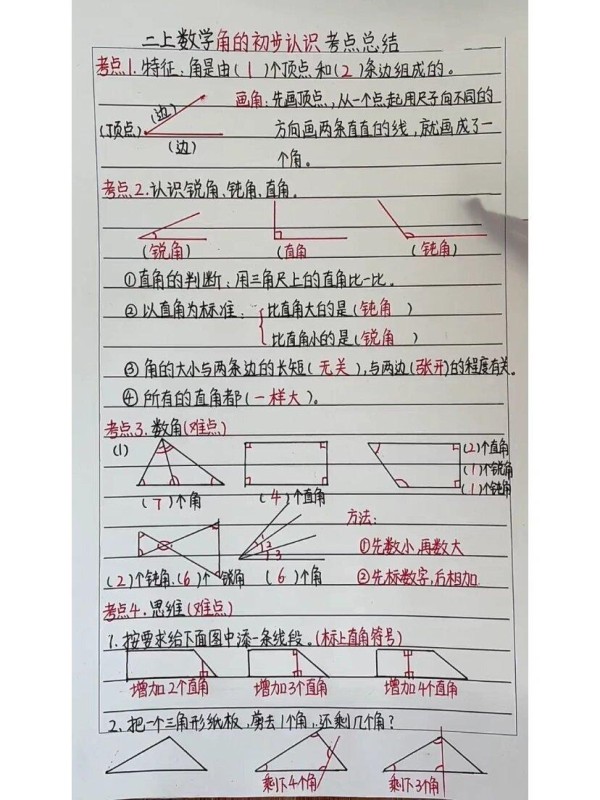 二上数学角的初步认识考点总结
考点1.特征:角是由(1)个顶点和(2)条边组成的。
画角:先画顶点,从一个点起用尺子向不同的
(边)
(顶点)
方向画两条直直的线,就画成了一
(边)
个角。
考点2.认识锐角、钝角、直角。
(锐角)
(直角
(钝角)
①直角的判断:用三角尺上的直角比一比。
②以直角为标准:
比直角大的是(钝角)
比直角小的是(锐角)
③角的大小与两条边的长短(无关),与两边(张开)的程度有关。
④所有的直角都(一样大)。
考点3.数角(难点)
(1)
(2)个直角
(1)个锐角
(1)个钝角
(7)个角
(4)个直角
方法:
1
2
3
①先数小,再数大
(2)个钝角、(6)个锐角
(6)个角
②先标数字,后相加
考点4.思维(难点)
1.按要求给下面图中添一条线段。(标上直角符号)
增加2个直角
增加3个直角
增加4个直角
2.把一个三角形纸板,剪去1个角,还剩几个角?
剩下4个角
剩下3个角